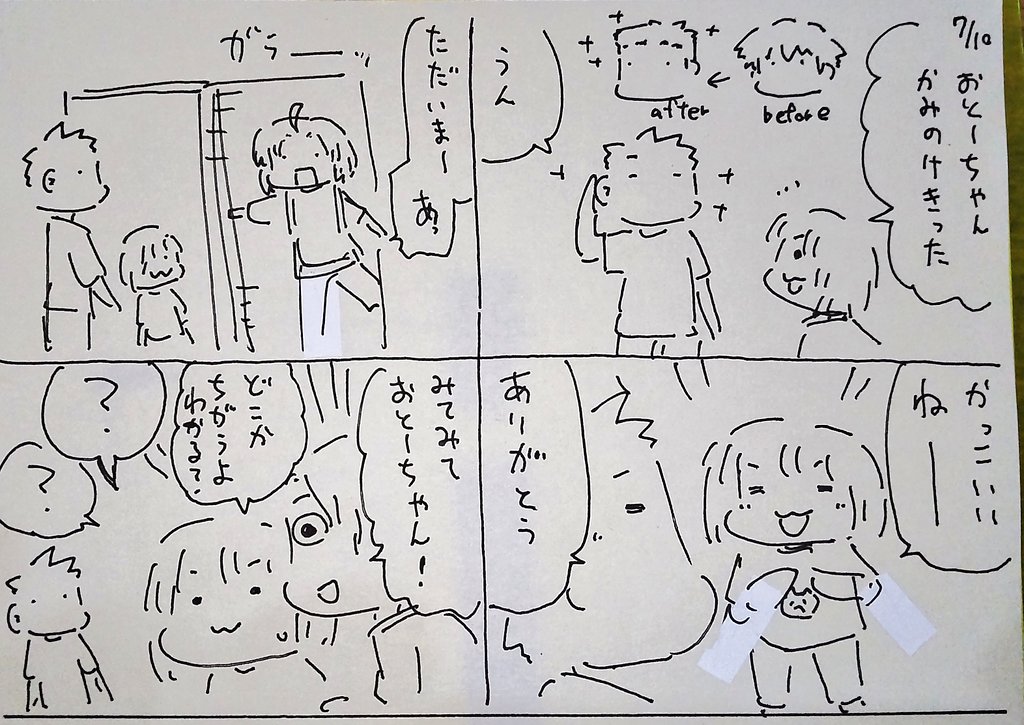 7/10
おとーちゃん
かみのけきった
before
after
うん
かっこいい
ねー
ありがとう
がらーっ
ただいまー
あっ
みてみて
おとーちゃん!
どこか
ちがうよ
わかる?
?
?